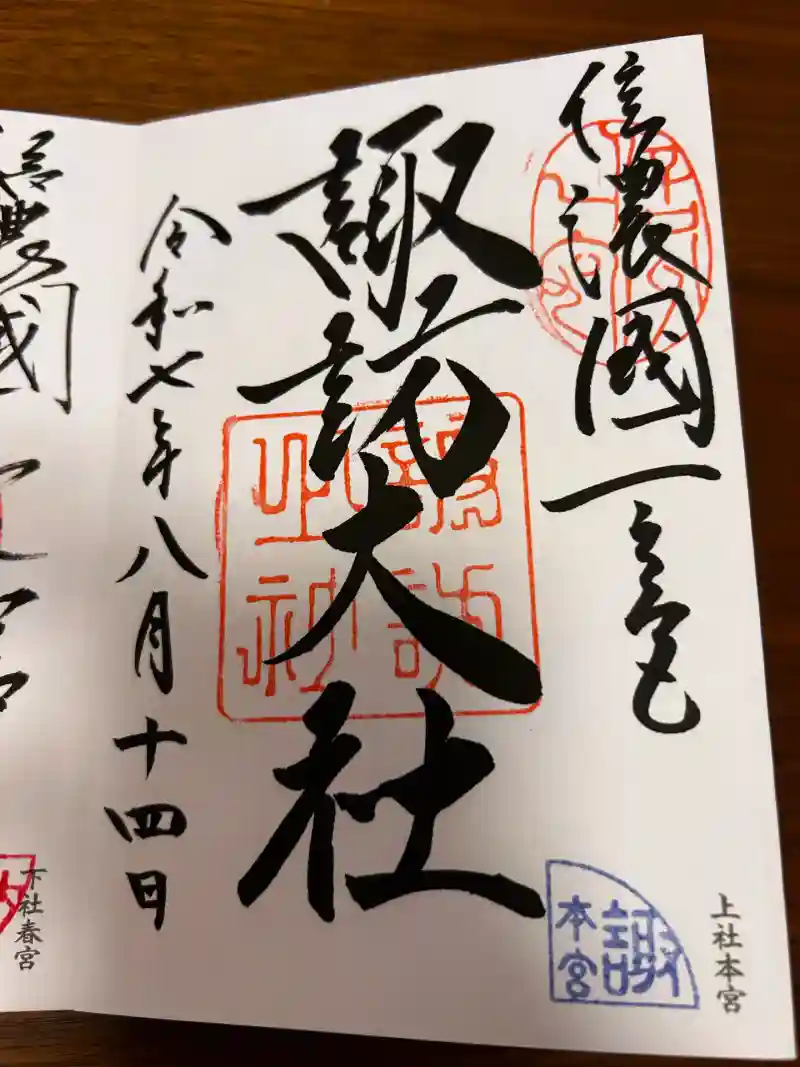 信濃國一之宮
諏訪大社
令和七年八月十四日
上社本宮
諏
本宮
諏訪
之神
下社春宮